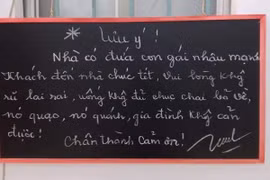 * Lưu ý !
Nhà có đứa con gái nhậu mạnh
Khách đến nhà chúc tết, vui lòng khg
rủ lai rai, uống khg đủ chục chai bia về,
nó quạo, nó quánh, gia đình khg cản
được !
Chân thành Cảm ơn!